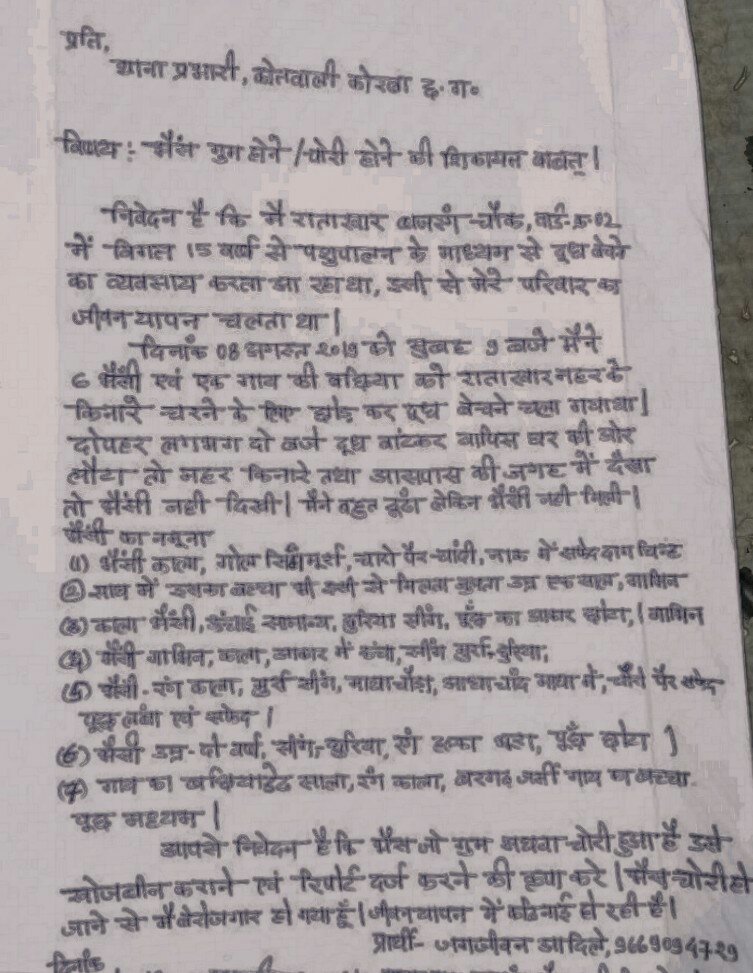 प्रति,
थाना प्रभारी, कोतवाली कोरबा छ.ग.
विषय: भैंस गुम होने / चोरी होने की शिकायत बाबत् |
निवेदन है कि मै राताखार बजरंग चौक, वार्ड-क्र-02
में विगत 15 वर्ष से पशुपालन के माध्यम से दूध बेचने
का व्यवसाय करता आ रहा था, इसी से मेरे परिवार का
जीवन यापन चलता था |
दिनाँक 08 अगस्त 2019 को सुबह 9 बजे मैने
6 भैंसी एवं एक गाय की बछिया को राताखार नहर के
किनारे चरने के लिए छोड़ कर दूध बेचने चला गया था |
दोपहर लगभग दो बजे दूध बांटकर वापिस घर की ओर
लौटा तो नहर किनारे तथा आसपास की जगह में देखा
तो भैंसी नही दिखी | मैने बहुत ढूँढा लेकिन भैंसी नही मिली |
भैंसी का नमूना
(1) भैंसी काला, गोल सिंग मुर्रा, चारो पैर चांदी, नाक में सफेद दाग चिन्ह
(2) साथ में उसका बच्चा भी उसी से मिलता जुलता उम्र एक साल, गाभिन
(3) काला भैंसी, ऊंचाई सामान्य, छुरिया सींग, पूँछ का आकार छोटा, | गाभिन
(4) भैंसी गाभिन, काला, आकार में ऊंचा, सींग मुर्रा-छुरिया,
(5) भैंसी - रंग काला, मुर्रा सींग, माथा चौड़ा, आधा चाँद माथा में, पैर सफेद
पूछ लंबा एवं सफेद |
(6) भैंसी उम्र - दो वर्ष, सींग - छुरिया, रंग हल्का भूरा, पूछँ छोटा |
(7) गाय का बछिया डेढ साल, रंग काला, जर्सी गाय का बच्चा
पूछ मध्यम |
आपसे निवेदन है कि भैंस जो गुम अथवा चोरी हुआ है उसे
खोजबीन कराने एवं रिपोर्ट दर्ज करने की कृपा करे | भैंस चोरी हो
जाने से मै बेरोजगार हो गया हूँ | जीवन यापन में कठिनाई हो रही है |
प्रार्थी - जगजीवन आदिले, 9669094729
दिनाँक